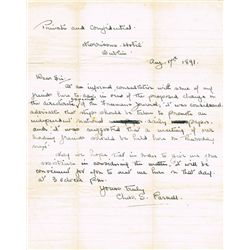 Private and Confidential.
Morrisons Hotel
Dublin
Aug 17th 1891.
Dear Sir
At an informal consultation with some of my
friends here to-day in view of the proposed change in
the direction of the Freemans Journal, it was considered
advisable that steps should be taken to promote an
independent national daily paper
and it was suggested that a meeting of our
leading friends should be held here on Thursday
next
May we hope that in order to give us your
assistance in considering the matter, it will be
convenient for you to meet us here on that day.
at 3 oclock p.m.
Yours truly
Chas. S. Parnell.